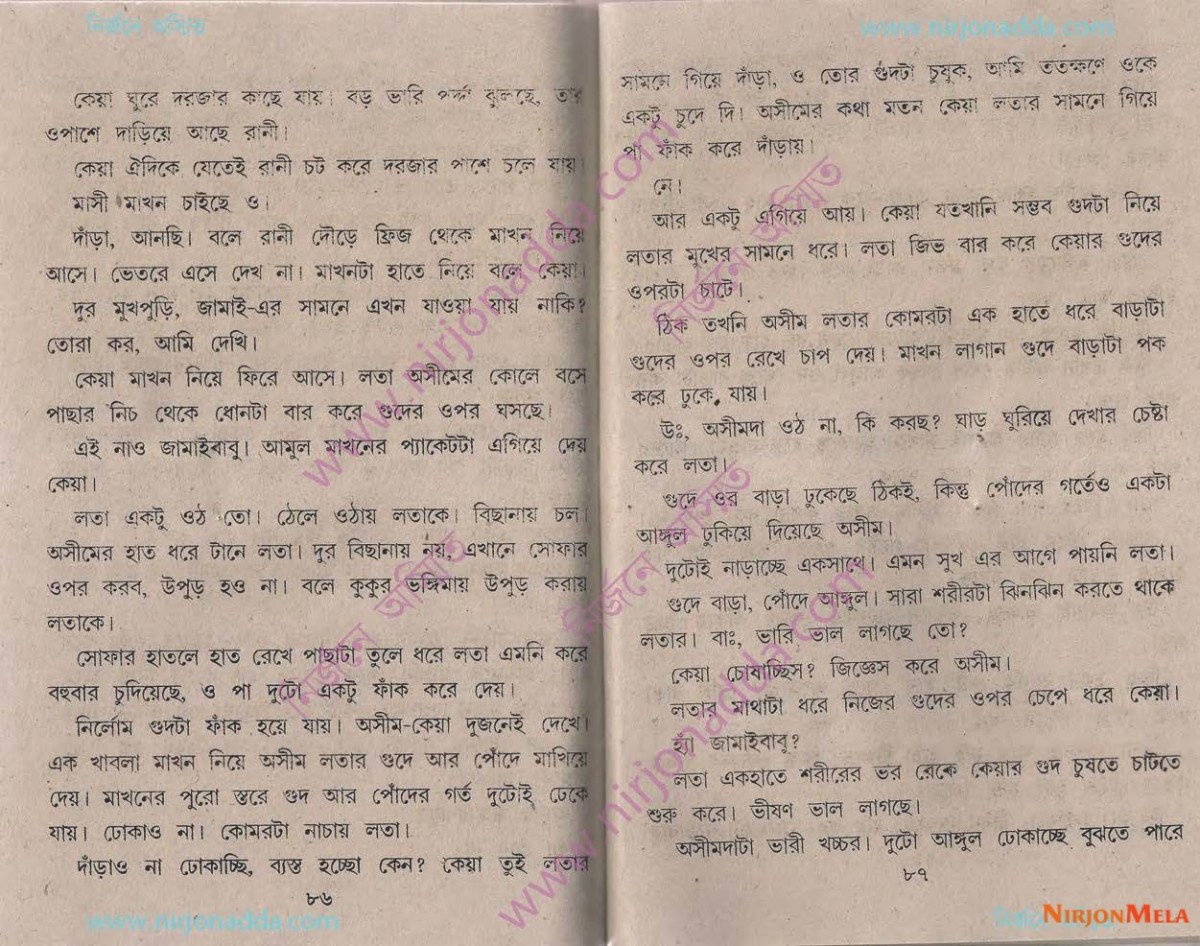 নির্জনে অস্মিত
www.nirjonadda.com
কেয়া ঘুরে দরজার কাছে যায়। বড় ভারি পর্দা ঝুলছে, তার
ওপাশে দাড়িয়ে আছে রানী।
কেয়া ঐদিকে যেতেই রানী চট করে দরজার পাশে চলে যায়।
মাসী মাখন চাইছে ও।
দাঁড়া, আনছি। বলে রানী দৌড়ে ফ্রিজ থেকে মাখন নিয়ে
আসে। ভেতরে এসে দেখ না। মাখনটা হাতে নিয়ে বলে কেয়া।
দুর মুখপুড়ি, জামাই-এর সামনে এখন যাওয়া যায় নাকি?
তোরা কর, আমি দেখি।
কেয়া মাখন নিয়ে ফিরে আসে। লতা অসীমের কোলে বসে
পাছার নিচ থেকে ধোনটা বার করে গুদের ওপর ঘসছে।
এই নাও জামাইবাবু। আমুল মাখনের প্যাকেটটা এগিয়ে দেয়
কেয়া।
লতা একটু ওঠ তো। ঠেলে ওঠায় লতাকে। বিছানায় চল।
অসীমের হাত ধরে টানে লতা। দুর বিছানায় নয়, এখানে সোফার
ওপর করব, উপুড় হও না। বলে কুকুর ভঙ্গিমায় উপুড় করায়
লতাকে।
সোফার হাতলে হাত রেখে পাছাটা তুলে ধরে লতা এমনি করে
বহুবার চুদিয়েছে, ও পা দুটো একটু ফাঁক করে দেয়।
নির্লোম গুদটা ফাঁক হয়ে যায়। অসীম-কেয়া দুজনেই দেখে।
এক খাবলা মাখন নিয়ে অসীম লতার গুদে আর পোঁদে মাখিয়ে
দেয়। মাখনের পুরো স্তরে গুদ আর পোঁদের গর্ত দুটোই ঢেকে
যায়। ঢোকাও না। কোমরটা নাচায় লতা।
দাঁড়াও না ঢোকাচ্ছি, ব্যস্ত হচ্ছো কেন? কেয়া তুই লতার
৮৬
www.nirjonadda.com
সামনে গিয়ে দাঁড়া, ও তোর গুদটা চুষুক, আমি ততক্ষণে ওকে
একটু চুদে দি। অসীমের কথা মতন কেয়া লতার সামনে গিয়ে
পা ফাঁক করে দাঁড়ায়।
নে।
আর একটু এগিয়ে আয়। কেয়া যতখানি সম্ভব গুদটা নিয়ে
লতার মুখের সামনে ধরে। লতা জিভ বার করে কেয়ার গুদের
ওপরটা চাটে।
ঠিক তখনি অসীম লতার কোমরটা এক হাতে ধরে বাড়াটা
গুদের ওপর রেখে চাপ দেয়। মাখন লাগান গুদে বাড়াটা পক
করে ঢুকে, যায়।
উঃ, অসীমদা ওঠ না, কি করছ? ঘাড় ঘুরিয়ে দেখার চেষ্টা
করে লতা।
গুদে ওর বাড়া ঢুকেছে ঠিকই, কিন্তু পোঁদের গর্তেও একটা
আঙ্গুল ঢুকিয়ে দিয়েছে অসীম।
দুটোই নাড়াচ্ছে একসাথে। এমন সুখ এর আগে পায়নি লতা।
গুদে বাড়া, পোঁদে আঙ্গুল। সারা শরীরটা ঝিনঝিন করতে থাকে
লতার। বাঃ, ভারি ভাল লাগছে তো?
কেয়া চোষাচ্ছিস? জিজ্ঞেস করে অসীম।
লতার মাথাটা ধরে নিজের গুদের ওপর চেপে ধরে কেয়া।
হ্যাঁ জামাইবাবু?
লতা একহাতে শরীরের ভর রেকে কেয়ার গুদ চুষতে চাটতে
শুরু করে। ভীষণ ভাল লাগছে।
অসীমদাটা ভারী খচ্চর। দুটো আঙ্গুল ঢোকাচ্ছে বুঝতে পারে
৮৭
NIRJONMELA
www.nirjonadda.com
নির্জনে অস্মিত
www.nirjonadda.com
নির্জনে অস্মিত